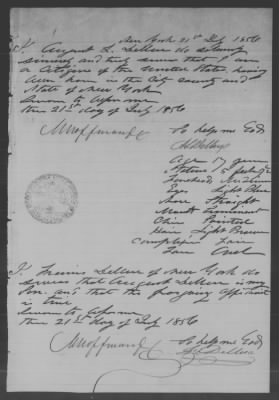 New York 21st July 1856
I. August L. Delluc do solemnly
sincerely and truly swear that I am
a Citizen of the United States, having
been born in the City county and
State of New York
Sworn to before me
this 21st day of July 1856
So help me God
Age 17 years
Stature 5 feet
Forehead Medium
Eyes Light Blue
Nose Straight
Mouth Prominent
Chin Pointed
Hair Light Brown
Complexion Fair
Face Oval
I. Delluc of New York do
swear that August Delluc is my
son and that the foregoing affidavit
is true
Sworn to before me
this 21st day of July 1856
So help me God